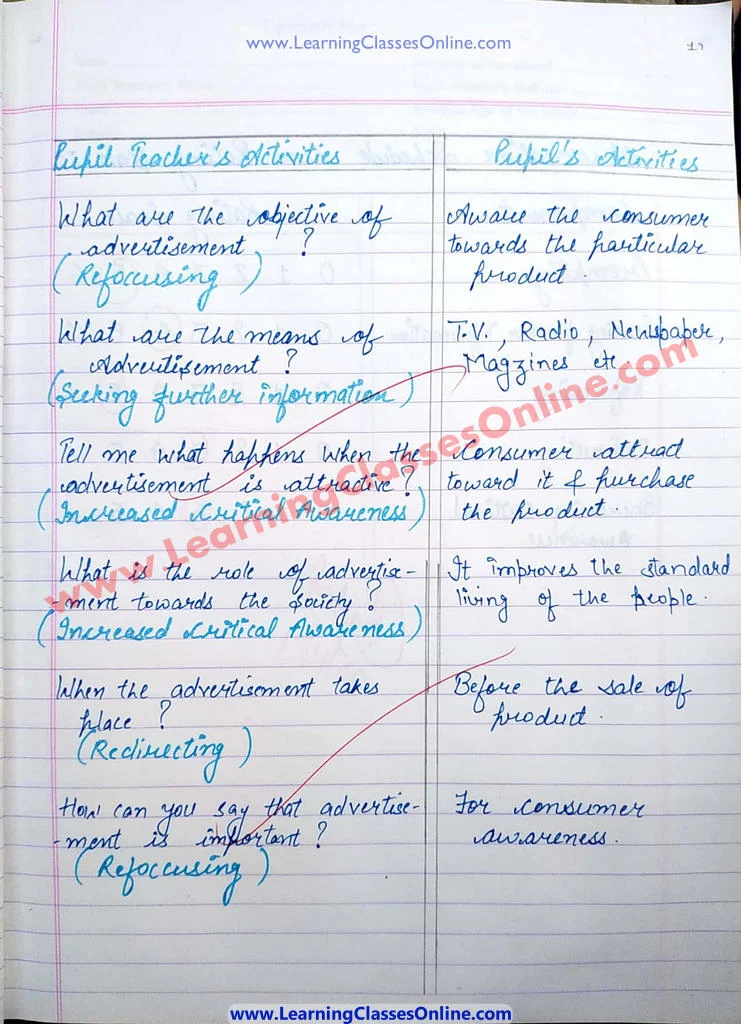 www.LearningClassesOnline.com
Pupil Teacher's Activities
Pupil's Activities
What are the objective of
advertisement ?
(Refoccusing)
Aware the consumer
towards the particular
product.
What are the means of
Advertisement ?
(Seeking further information)
T.V., Radio, Newspaper,
Magzines etc.
Tell me what happens when the
advertisement is attractive?
(Increased Critical Awareness)
Consumer attract
toward it & purchase
the product.
What is the role of advertise-
-ment towards the society?
(Increased Critical Awareness)
It improves the standard
living of the people.
When the advertisement takes
place ?
(Redirecting)
Before the sale of
product.
How can you say that advertise-
-ment is important?
(Refoccusing)
For consumer
awareness.
www.LearningClassesOnline.com
www.LearningClassesOnline.com